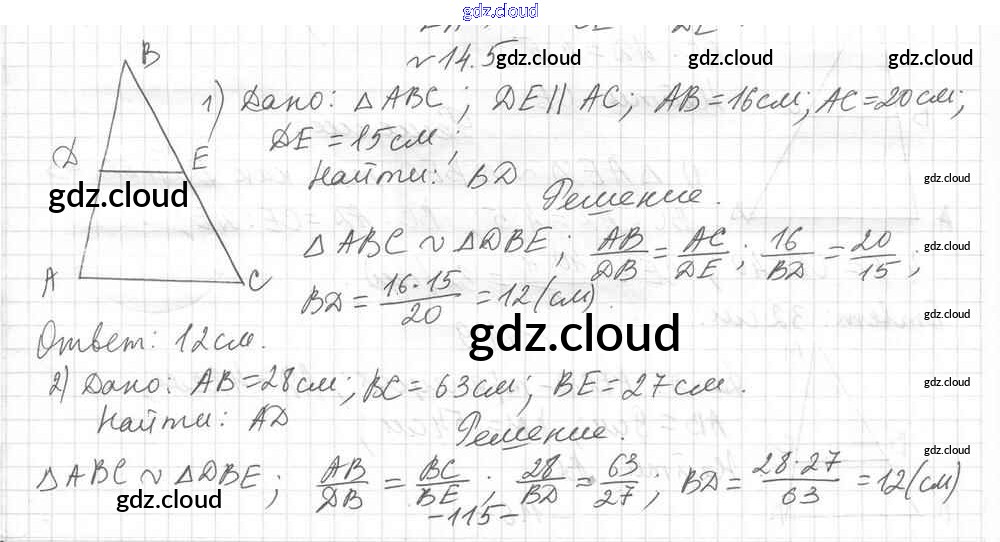 gdz.cloud
№ 14.5
gdz.cloud gdz.cloud gdz.cloud
B
1) Дано: △ABC; DE || AC; AB = 16 см; AC = 20 см;
DE = 15 см;
D E
Найти: BD
gdz.cloud gdz.cloud
Решение.
△ABC ~ △DBE; AB/DB = AC/DE; 16/BD = 20/15;
gdz.cloud
A C
BD = 16·15/20 = 12 (см).
gdz.cloud gdz.cloud
Ответ: 12 см.
2) Дано: AB = 28 см; BC = 63 см; BE = 27 см.
gdz.cloud
Найти: AD
Решение.
gdz.cloud
△ABC ~ △DBE; AB/DB = BC/BE; 28/BD = 63/27; BD = 28·27/63 = 12 (см)
gdz.cloud gdz.cloud gdz.cloud
-115-